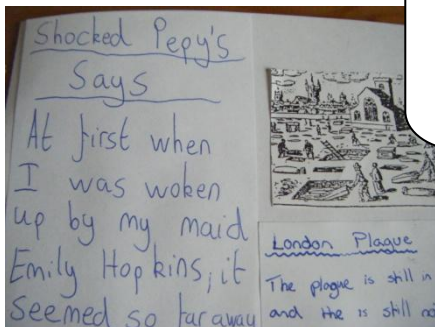 Shocked Pepy's
Says
At first when
I was woken
up by my maid
Emily Hopkins, it
seemed so far away
London Plague
The plague is still in
and the is still no